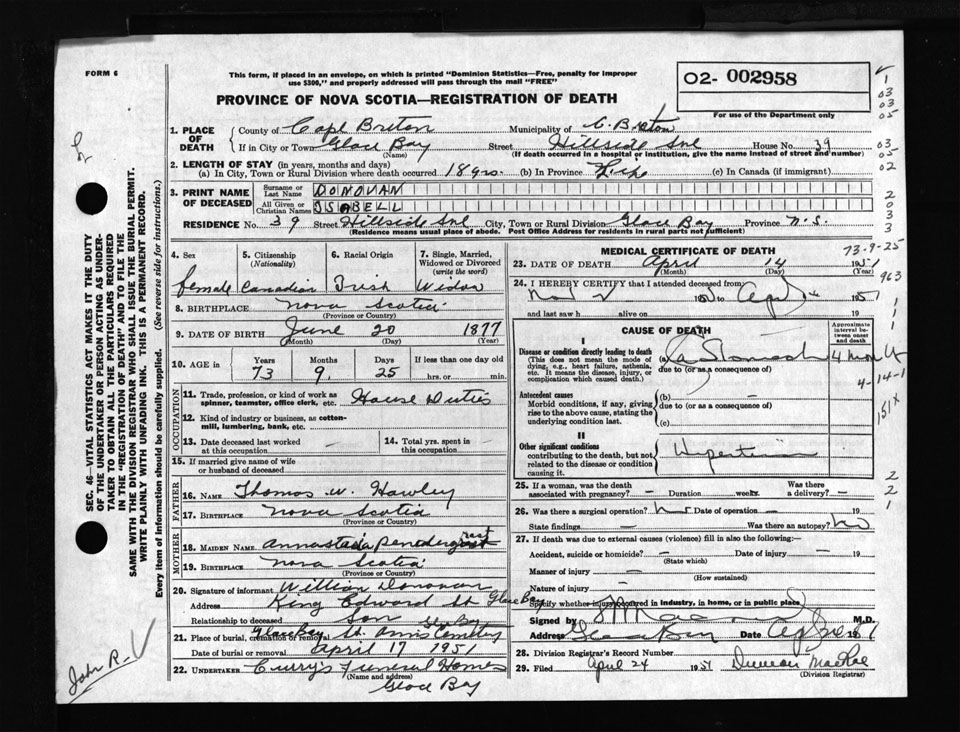 FORM 6
This form, if placed in an envelope, on which is printed "Dominion Statistics—Free, penalty for improper
use $300," and properly addressed will pass through the mail "FREE"
O2- 002958
For use of the Department only
PROVINCE OF NOVA SCOTIA—REGISTRATION OF DEATH
1. PLACE OF DEATH
County of Cape Breton Municipality of C. Breton
If in City or Town Glace Bay Street Hillside Ave House No. 39
(Name) (If death occurred in a hospital or institution, give the name instead of street and number)
2. LENGTH OF STAY (in years, months and days)
(a) In City, Town or Rural Division where death occurred 18 yrs. (b) In Province Life (c) In Canada (if immigrant)
3. PRINT NAME OF DECEASED
Surname or Last Name DONOVAN
All Given or Christian Names ISABELL
RESIDENCE No. 39 Street Hillside Ave City, Town or Rural Division Glace Bay Province N.S.
(Residence means usual place of abode. Post Office Address for residents in rural parts not sufficient)
4. Sex 5. Citizenship (Nationality) 6. Racial Origin 7. Single, Married, Widowed or Divorced (write the word)
female Canadian Irish Widow
8. BIRTHPLACE Nova Scotia
(Province or Country)
9. DATE OF BIRTH June 20 1877
(Month) (Day) (Year)
10. AGE in Years Months Days If less than one day old
73 9 25 hrs. or min.
OCCUPATION
11. Trade, profession, or kind of work as spinner, teamster, office clerk, etc. House Duties
12. Kind of industry or business, as cotton-mill, lumbering, bank, etc.
13. Date deceased last worked at this occupation — 14. Total yrs. spent in this occupation —
15. If married give name of wife or husband of deceased
FATHER
16. NAME Thomas W. Hawley
17. BIRTHPLACE Nova Scotia
(Province or Country)
MOTHER
18. MAIDEN NAME Annastasia Pendergrast
19. BIRTHPLACE Nova Scotia
(Province or Country)
20. Signature of informant William Donovan
Address King Edward St Glace Bay
Relationship to deceased Son
21. Place of burial, cremation or removal Glace Bay St. Anns Cemetery Gl. Bay
Date of burial or removal April 17 1951
22. UNDERTAKER Curry's Funeral Homes
(Name and address)
Glace Bay
MEDICAL CERTIFICATE OF DEATH 73-9-25
23. DATE OF DEATH April 14 1951
(Month) (Day) (Year)
24. I HEREBY CERTIFY that I attended deceased from:
and last saw h alive on 19
CAUSE OF DEATH
Approximate interval between onset and death
I
Disease or condition directly leading to death (a) Ca Stomach
(This does not mean the mode of dying, e.g., heart failure, asthenia, etc. It means the disease, injury, or complication which caused death.)
due to (or as a consequence of)
4-14-1
Antecedent causes (b) —
Morbid conditions, if any, giving rise to the above cause, stating the underlying condition last.
due to (or as a consequence of)
(c)
151X
II
Other significant conditions
contributing to the death, but not related to the disease or condition causing it.
25. If a woman, was the death associated with pregnancy? — Duration weeks Was there a delivery? —
26. Was there a surgical operation? No Date of operation — 19
State findings — Was there an autopsy? No
27. If death was due to external causes (violence) fill in also the following:—
Accident, suicide or homicide? — Date of injury — 19
(State which)
Manner of injury —
(How sustained)
Nature of injury —
Specify whether injury occurred in industry, in home, or in public place
Signed by M.D.
Address Glace Bay Date
28. Division Registrar's Record Number
29. Filed April 24 1951 Duncan MacRae
(Division Registrar)
SEC. 46—VITAL STATISTICS ACT MAKES IT THE DUTY
OF THE UNDERTAKER OR PERSON ACTING AS UNDER-
TAKER TO OBTAIN ALL THE PARTICULARS REQUIRED
IN THE "REGISTRATION OF DEATH" AND TO FILE THE
SAME WITH THE DIVISION REGISTRAR WHO SHALL ISSUE THE BURIAL PERMIT.
WRITE PLAINLY WITH UNFADING INK. THIS IS A PERMANENT RECORD.
Every item of information should be carefully supplied. (See reverse side for instructions.)
John R.